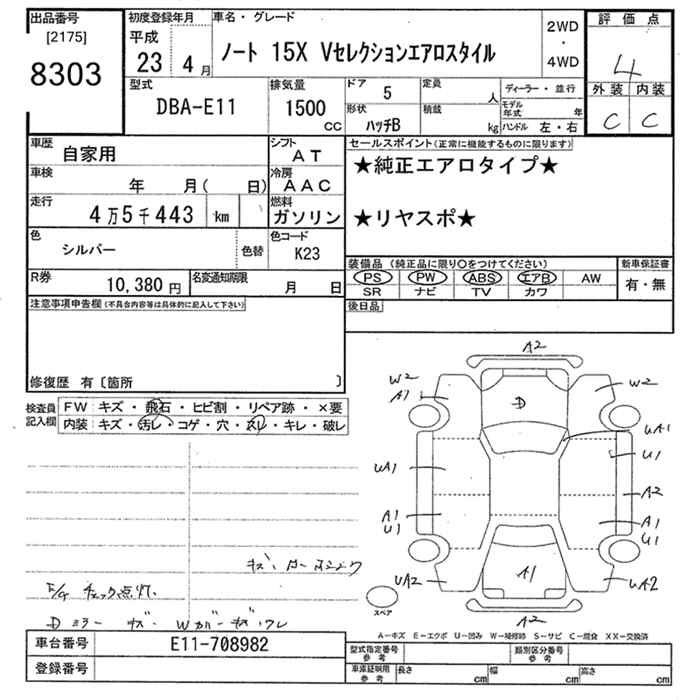 出品番号
[2175]
8303
初度登録年月
平成
23 4 月
車名・グレード
ノート 15X Vセレクションエアロスタイル
2WD
・
4WD
評価点
4
外装 内装
C C
型式
DBA-E11
排気量
1500 cc
ドア 5
形状 ハッチB
定員 人
積載 kg
ディーラー・並行
モデル年式 年
ハンドル 左・右
車歴 自家用
シフト AT
車検 年 月( 日)
冷房 AAC
走行 4万5千443 km
燃料 ガソリン
色 シルバー 色替
色コード K23
R券 10,380 円
名変通知期限 月 日
セールスポイント(正常に機能するものに限ります)
★純正エアロタイプ★
★リヤスポ★
装備品(純正品に限り○をつけてください)
PS PW ABS エアB AW
SR ナビ TV カワ
新車保証書
有・無
後日品
注意事項申告欄(不具合内容等は具体的に記入して下さい)
修復歴 有〔箇所 〕
検査員記入欄
FW: キズ・飛石・ヒビ割・リペア跡・×要
内装: キズ・汚レ・コゲ・穴・スレ・キレ・破レ
A2
W2 W2
A1
D
UA1
UA1 U1
A2
A1 A1
U1 U1
UA2 A1 UA2
A2
スペア
チェック点灯.
Dミラー キズ
A-キズ E-エクボ U-凹み W-補修跡 S-サビ C-腐食 XX-交換済
車台番号 E11-708982
登録番号
型式指定番号 参考
類別区分番号 参考
車庫証明用 参考
長さ cm 幅 cm 高さ cm